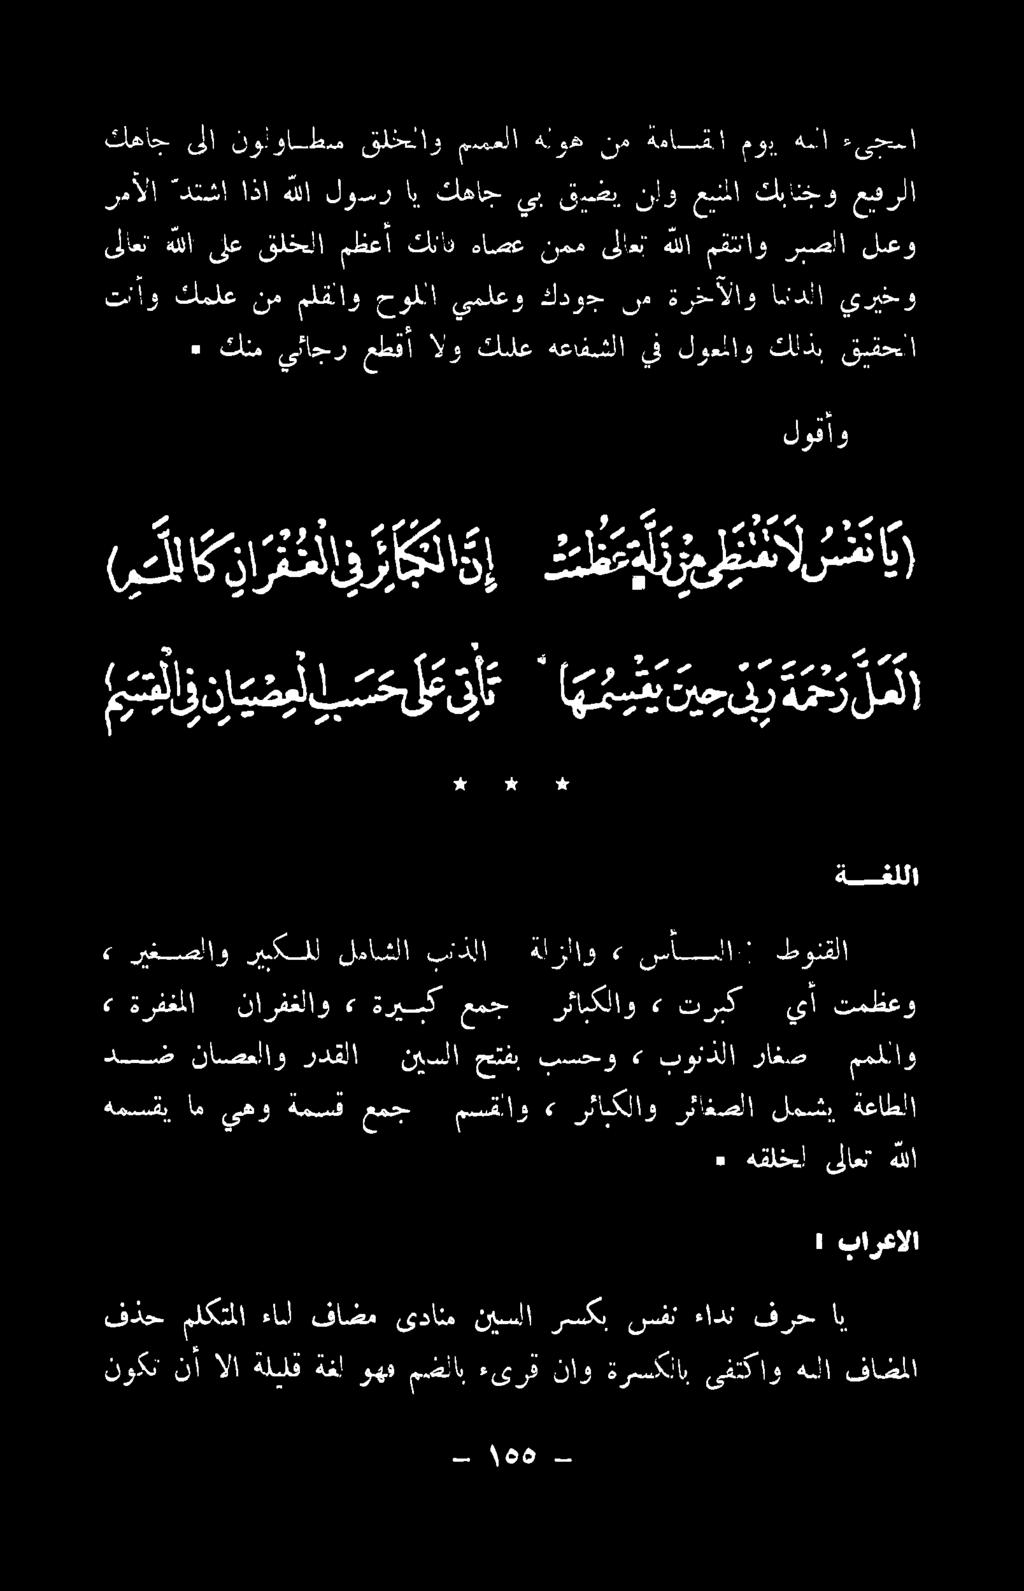 التجىء اليه يوم القيامة من هوله العميم والخلق متطاولون الى جاهك
الرفيع وجنابك المنيع ولن يضيق بي جاهك يا رسول الله اذا اشتدّ الأمر
وعيل الصبر وانتقم الله تعالى ممن عصاه فانك أعظم الخلق على الله تعالى
وخيري الدنيا والآخرة من جودك وعلمي اللوح والقلم من علمك وأنت
الحقيق بذلك والمعول في الشفاعة عليك ولا أقطع رجائي منك ٠
وأقول
(يَا نَفْسُ لَا تَقْنَطِي مِنْ زَلَّةٍ عَظُمَتْ إِنَّ الْكَبَائِرَ فِي الْغُفْرَانِ كَاللَّمَمِ)
(لَعَلَّ رَحْمَةَ رَبِّي حِينَ يَقْسِمُهَا تَأْتِي عَلَى حَسَبِ الْعِصْيَانِ فِي الْقِسَمِ)
* * *
اللغـــة
القنوط : اليـــأس ، والزلة الذنب الشامل للـكبير والصـغير ،
وعظمت أي كبرت ، والكبائر جمع كبـيرة ، والغفران المغفرة ،
واللمم صغار الذنوب ، وحسب بفتح السين القدر والعصيان ضـــد
الطاعة يشمل الصغائر والكبائر ، والقسم جمع قسمة وهي ما يقسمه
الله تعالى لخلقه ٠
الاعراب :
يا حرف نداء نفس بكسر السين منادى مضاف لياء المتكلم حذف
المضاف اليه واكتفى بالكسرة وان قرىء بالضم فهو لغة قليلة الا أن تكون
– ١٥٥ –